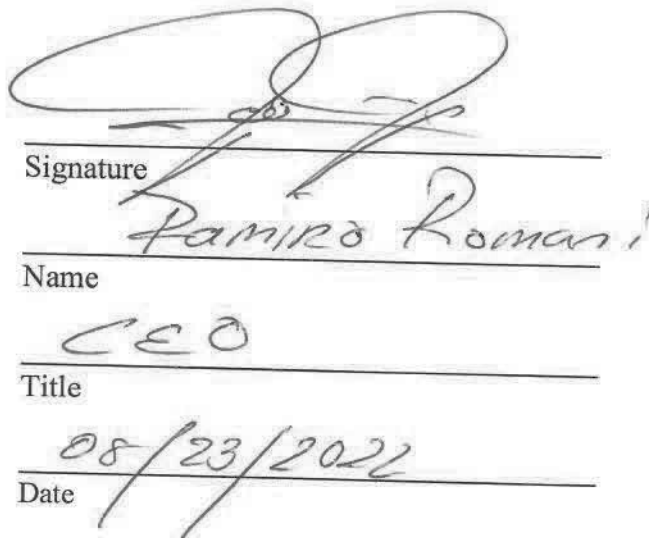 Signature
Ramiro Romani
Name
CEO
Title
08/23/2022
Date